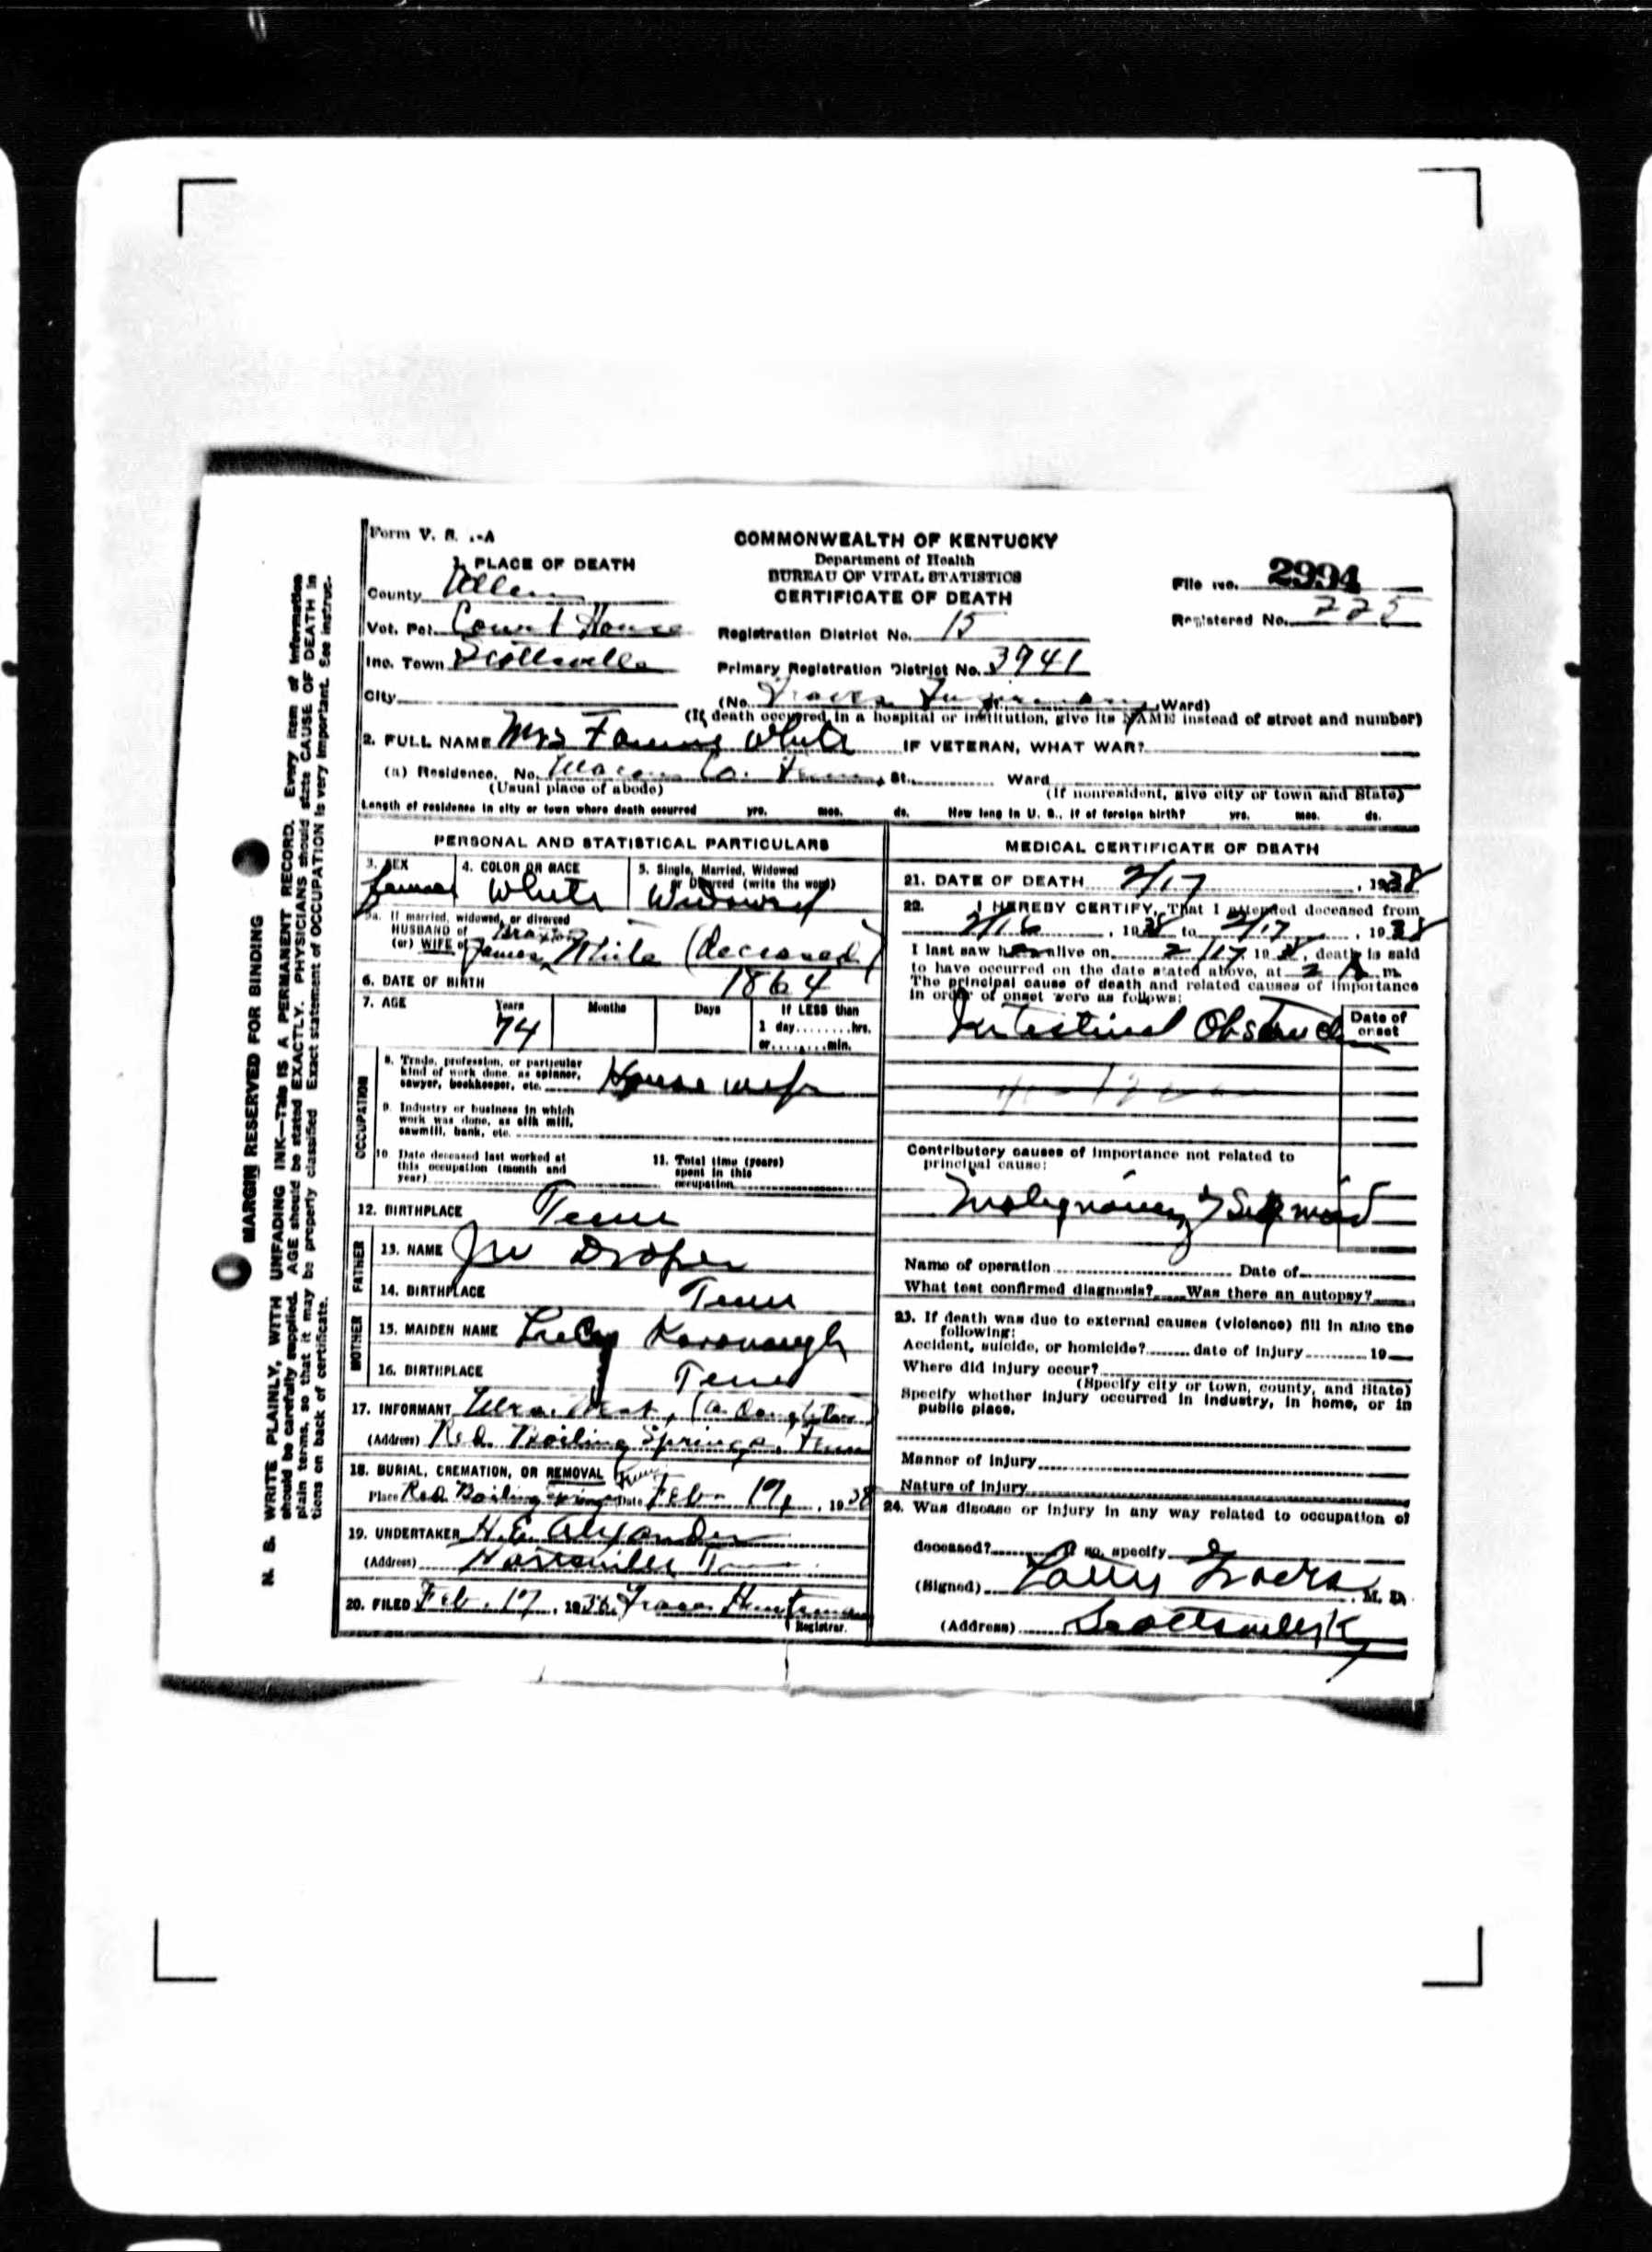 Form V. S. 1-A
COMMONWEALTH OF KENTUCKY
Department of Health
BUREAU OF VITAL STATISTICS
CERTIFICATE OF DEATH
File No. 2994
Registered No. 225
1. PLACE OF DEATH
County Allen
Vot. Pct. Court House
Inc. Town Scottsville
City
Registration District No. 15
Primary Registration District No. 3941
(No. Graves Infirmary Ward)
(If death occurred in a hospital or institution, give its NAME instead of street and number)
2. FULL NAME Mrs Fannie White IF VETERAN, WHAT WAR?
(a) Residence. No. Macon Co. Tenn, St. Ward
(Usual place of abode) (If nonresident, give city or town and State)
Length of residence in city or town where death occurred yrs. mos. ds. How long in U. S., if of foreign birth? yrs. mos. ds.
PERSONAL AND STATISTICAL PARTICULARS
3. SEX Female
4. COLOR OR RACE White
5. Single, Married, Widowed or Divorced (write the word) Widowed
5a. If married, widowed, or divorced
HUSBAND of
(or) WIFE of James Braxton White (deceased)
6. DATE OF BIRTH 1864
7. AGE Years 74 Months Days If LESS than
1 day........hrs.
or........min.
OCCUPATION
8. Trade, profession, or particular
kind of work done, as spinner,
sawyer, bookkeeper, etc. House wife
9. Industry or business in which
work was done, as silk mill,
sawmill, bank, etc.
10. Date deceased last worked at
this occupation (month and
year)
11. Total time (years)
spent in this
occupation
12. BIRTHPLACE Tenn
FATHER
13. NAME Jno Draper
14. BIRTHPLACE Tenn
MOTHER
15. MAIDEN NAME Kavanaugh
16. BIRTHPLACE Tenn
17. INFORMANT (a daughter)
(Address) Red Boiling Springs, Tenn
18. BURIAL, CREMATION, OR REMOVAL
Place Red Boiling Springs Tenn Date Feb 17, 1938
19. UNDERTAKER H.E. Alexander
(Address) Hartsville T
20. FILED Feb. 17, 1938. Huntsman
Registrar.
MEDICAL CERTIFICATE OF DEATH
21. DATE OF DEATH 2/17, 1938
22. I HEREBY CERTIFY, That I attended deceased from
2/16, 1938 to 2/17, 1938
I last saw her alive on 2/17 1938, death is said
to have occurred on the date stated above, at 2 A m.
The principal cause of death and related causes of importance
in order of onset were as follows:
Date of onset
Intestinal Obstruction
Contributory causes of importance not related to
principal cause:
Malignancy of Sigmoid
Name of operation Date of
What test confirmed diagnosis? Was there an autopsy?
23. If death was due to external causes (violence) fill in also the
following:
Accident, suicide, or homicide? date of injury 19
Where did injury occur?
(Specify city or town, county, and State)
Specify whether injury occurred in industry, in home, or in
public place.
Manner of injury
Nature of injury
24. Was disease or injury in any way related to occupation of
deceased? If so, specify
(Signed) M. D.
(Address) Scottsville Ky
MARGIN RESERVED FOR BINDING
N. B. WRITE PLAINLY, WITH UNFADING INK—This IS A PERMANENT RECORD. Every item of information
should be carefully supplied. AGE should be stated EXACTLY. PHYSICIANS should state CAUSE OF DEATH in
plain terms, so that it may be properly classified. Exact statement of OCCUPATION is very important. See instruc-
tions on back of certificate.